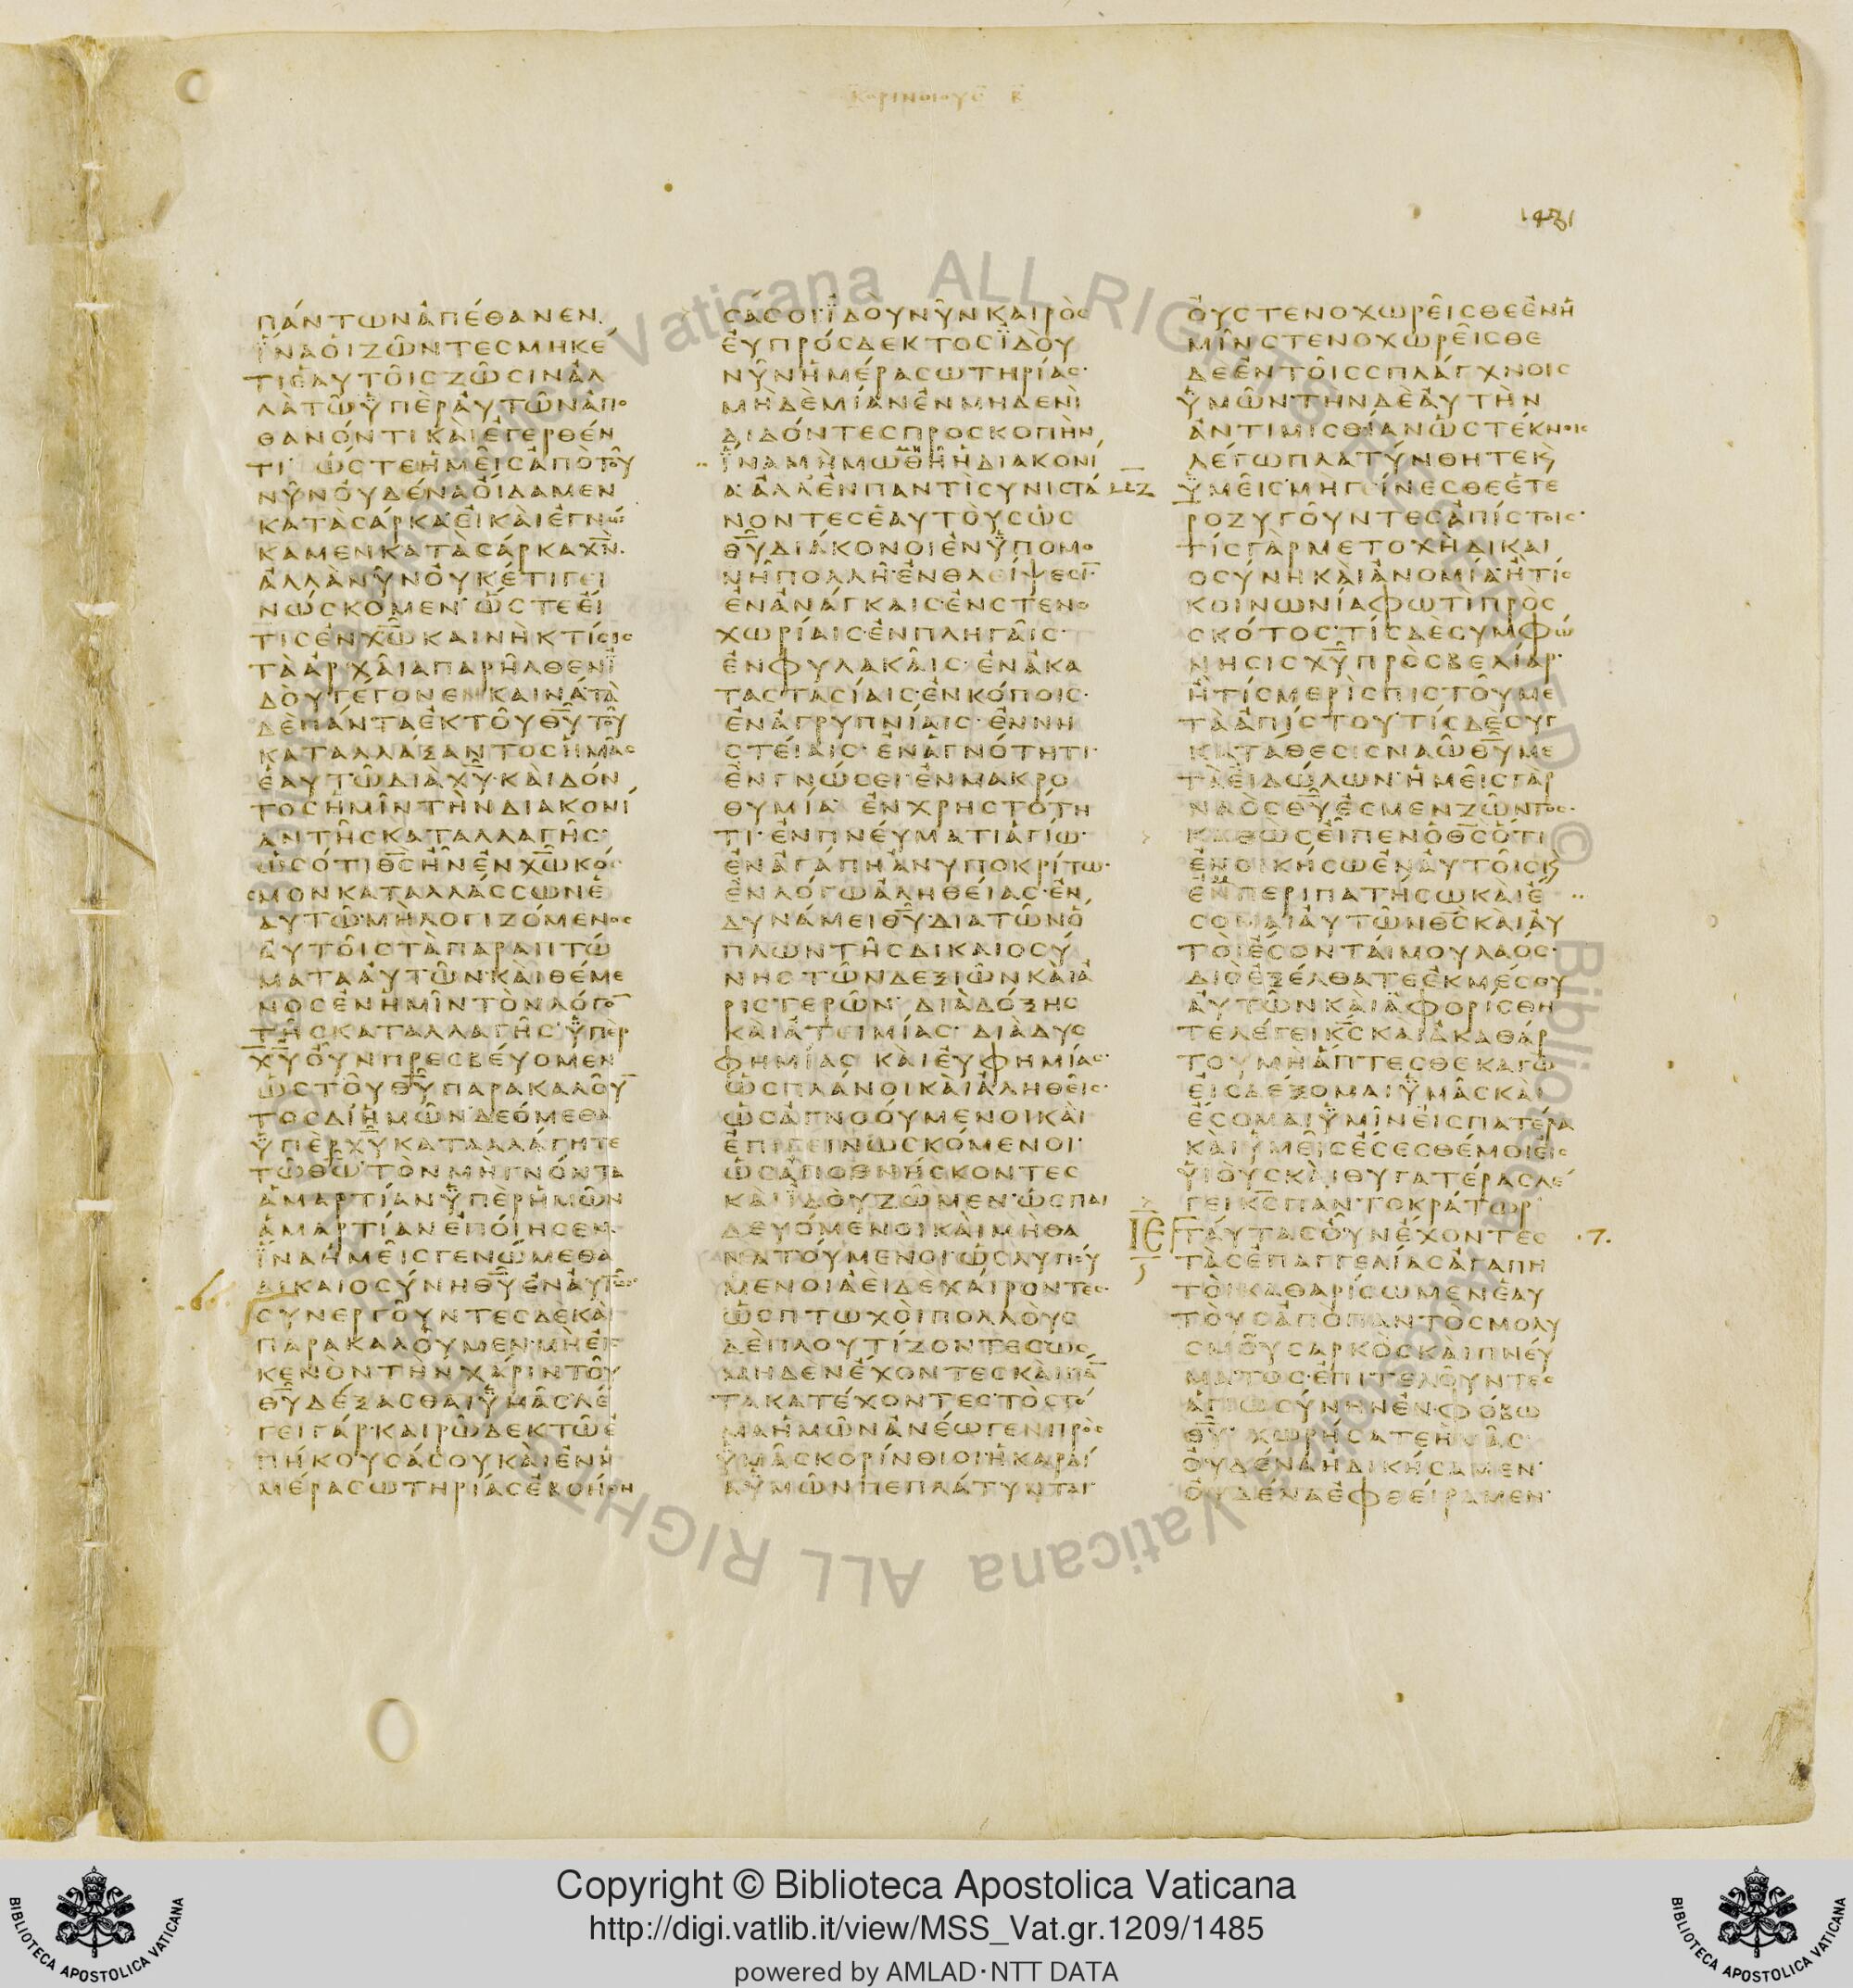 ΚΟΡΙΝΘΙΟΥΣ Β
1481
ΠΑΝΤΩΝΑΠΕΘΑΝΕΝ
ΪΝΑΟΙΖΩΝΤΕϹΜΗΚΕ
ΤΙΕΑΥΤΟΙϹΖΩϹΙΝΑΛ
ΛΑΤΩΫΠΕΡΑΥΤΩΝΑΠΟ
ΘΑΝΟΝΤΙΚΑΙΕΓΕΡΘΕΝ
ΤΙ ΩϹΤΕΗΜΕΙϹΑΠΟΤΟΥ
ΝΥΝΟΥΔΕΝΑΟΙΔΑΜΕΝ
ΚΑΤΑϹΑΡΚΑ·ΕΙΚΑΙΕΓΝΩ
ΚΑΜΕΝΚΑΤΑϹΑΡΚΑΧΝ̅·
ΑΛΛΑΝΥΝΟΥΚΕΤΙΓΕΙ
ΝΩϹΚΟΜΕΝ·ΩϹΤΕΕΙ
ΤΙϹΕΝΧΩ̅ΚΑΙΝΗΚΤΙϹΙϹ
ΤΑΑΡΧΑΙΑΠΑΡΗΛΘΕΝΪ
ΔΟΥΓΕΓΟΝΕΝΚΑΙΝΑ·ΤΑ
ΔΕΠΑΝΤΑΕΚΤΟΥΘΥ̅ΤΟΥ
ΚΑΤΑΛΛΑΞΑΝΤΟϹΗΜΑϹ
ΕΑΥΤΩΔΙΑΧΥ̅·ΚΑΙΔΟΝ
ΤΟϹΗΜΙΝΤΗΝΔΙΑΚΟΝΙ
ΑΝΤΗϹΚΑΤΑΛΛΑΓΗϹ·
ΩϹΟΤΙΘϹ̅ΗΝΕΝΧΩ̅ΚΟϹ
ΜΟΝΚΑΤΑΛΛΑϹϹΩΝΕ
ΑΥΤΩΜΗΛΟΓΙΖΟΜΕΝΟϹ
ΑΥΤΟΙϹΤΑΠΑΡΑΠΤΩ
ΜΑΤΑΑΥΤΩΝ·ΚΑΙΘΕΜΕ
ΝΟϹΕΝΗΜΙΝΤΟΝΛΟΓΟ̅
ΤΗϹΚΑΤΑΛΛΑΓΗϹ·ΫΠΕΡ
ΧΥ̅ΟΥΝΠΡΕϹΒΕΥΟΜΕΝ
ΩϹΤΟΥΘΥ̅ΠΑΡΑΚΑΛΟΥ̅
ΤΟϹΔΙΗΜΩΝ·ΔΕΟΜΕΘΑ
ΫΠΕΡΧΥ̅ΚΑΤΑΛΛΑΓΗΤΕ
ΤΩΘΩ̅·ΤΟΝΜΗΓΝΟΝΤΑ
ΑΜΑΡΤΙΑΝΫΠΕΡΗΜΩΝ
ΑΜΑΡΤΙΑΝΕΠΟΙΗϹΕΝ·
ΪΝΑΗΜΕΙϹΓΕΝΩΜΕΘΑ
ΔΙΚΑΙΟϹΥΝΗΘΥ̅ΕΝΑΥΤΩ·
·6·
ϹΥΝΕΡΓΟΥΝΤΕϹΔΕΚΑΙ
ΠΑΡΑΚΑΛΟΥΜΕΝ·ΜΗΕΙϹ
ΚΕΝΟΝΤΗΝΧΑΡΙΝΤΟΥ
ΘΥ̅ΔΕΞΑϹΘΑΙΫΜΑϹ·ΛΕ
ΓΕΙΓΑΡ·ΚΑΙΡΩΔΕΚΤΩΕ
ΠΗΚΟΥϹΑϹΟΥΚΑΙΕΝΗ
ΜΕΡΑϹΩΤΗΡΙΑϹΕΒΟΗΘΗ
ϹΑϹΟΙ·ΪΔΟΥΝΥΝΚΑΙΡΟϹ
ΕΥΠΡΟϹΔΕΚΤΟϹΪΔΟΥ
ΝΥΝΗΜΕΡΑϹΩΤΗΡΙΑϹ·
ΜΗΔΕΜΙΑΝΕΝΜΗΔΕΝΙ
ΔΙΔΟΝΤΕϹΠΡΟϹΚΟΠΗΝ
ΪΝΑΜΗΜΩΜΗΘΗΗΔΙΑΚΟΝΙ
Α·ΑΛΛΕΝΠΑΝΤΙϹΥΝΙϹΤΑ
ΝΟΝΤΕϹΕΑΥΤΟΥϹΩϹ
ΘΥ̅ΔΙΑΚΟΝΟΙΕΝΫΠΟΜΟ
ΝΗΠΟΛΛΗ·ΕΝΘΛΙΨΕϹΙ̅·
ΕΝΑΝΑΓΚΑΙϹ·ΕΝϹΤΕΝΟ
ΧΩΡΙΑΙϹ·ΕΝΠΛΗΓΑΙϹ·
ΕΝΦΥΛΑΚΑΙϹ·ΕΝΑΚΑ
ΤΑϹΤΑϹΙΑΙϹ·ΕΝΚΟΠΟΙϹ·
ΕΝΑΓΡΥΠΝΙΑΙϹ·ΕΝΝΗ
ϹΤΕΙΑΙϹ·ΕΝΑΓΝΟΤΗΤΙ·
ΕΝΓΝΩϹΕΙ·ΕΝΜΑΚΡΟ
ΘΥΜΙΑ·ΕΝΧΡΗϹΤΟΤΗ
ΤΙ·ΕΝΠΝΕΥΜΑΤΙΑΓΙΩ·
ΕΝΑΓΑΠΗΑΝΥΠΟΚΡΙΤΩ·
ΕΝΛΟΓΩΑΛΗΘΕΙΑϹ·ΕΝ
ΔΥΝΑΜΕΙΘΥ̅·ΔΙΑΤΩΝΟ
ΠΛΩΝΤΗϹΔΙΚΑΙΟϹΥ
ΝΗϹΤΩΝΔΕΞΙΩΝΚΑΙΑ
ΡΙϹΤΕΡΩΝ·ΔΙΑΔΟΞΗϹ
ΚΑΙΑΤΕΙΜΙΑϹ·ΔΙΑΔΥϹ
ΦΗΜΙΑϹΚΑΙΕΥΦΗΜΙΑϹ·
ΩϹΠΛΑΝΟΙΚΑΙΑΛΗΘΕΙϹ·
ΩϹΑΓΝΟΟΥΜΕΝΟΙΚΑΙ
ΕΠΙΓΕΙΝΩϹΚΟΜΕΝΟΙ·
ΩϹΑΠΟΘΝΗϹΚΟΝΤΕϹ
ΚΑΙΪΔΟΥΖΩΜΕΝ·ΩϹΠΑΙ
ΔΕΥΟΜΕΝΟΙΚΑΙΜΗΘΑ
ΝΑΤΟΥΜΕΝΟΙ·ΩϹΛΥΠΟΥ
ΜΕΝΟΙΑΕΙΔΕΧΑΙΡΟΝΤΕϹ·
ΩϹΠΤΩΧΟΙΠΟΛΛΟΥϹ
ΔΕΠΛΟΥΤΙΖΟΝΤΕϹΩϹ
ΜΗΔΕΝΕΧΟΝΤΕϹΚΑΙΠΑ̅
ΤΑΚΑΤΕΧΟΝΤΕϹ·ΤΟϹΤΟ
ΜΑΗΜΩΝΑΝΕΩΓΕΝΠΡΟϹ
ΫΜΑϹΚΟΡΙΝΘΙΟΙ·ΗΚΑΡΔΙ
ΑΫΜΩΝΠΕΠΛΑΤΥΝΤΑΙ·
ΟΥϹΤΕΝΟΧΩΡΕΙϹΘΕΕΝΗ
ΜΙΝϹΤΕΝΟΧΩΡΕΙϹΘΕ
ΔΕΕΝΤΟΙϹϹΠΛΑΓΧΝΟΙϹ
ΫΜΩΝ·ΤΗΝΔΕΑΥΤΗΝ
ΑΝΤΙΜΙϹΘΙΑΝΩϹΤΕΚΝΟΙϹ
ΛΕΓΩΠΛΑΤΥΝΘΗΤΕΚϚ
ΜΖ
ΫΜΕΙϹ·ΜΗΓΕΙΝΕϹΘΕΕΤΕ
ΡΟΖΥΓΟΥΝΤΕϹΑΠΙϹΤΟΙϹ·
ΤΙϹΓΑΡΜΕΤΟΧΗΔΙΚΑΙ
ΟϹΥΝΗΚΑΙΑΝΟΜΙΑ·ΗΤΙϹ
ΚΟΙΝΩΝΙΑΦΩΤΙΠΡΟϹ
ϹΚΟΤΟϹ·ΤΙϹΔΕϹΥΜΦΩ
ΝΗϹΙϹΧΥ̅ΠΡΟϹΒΕΛΙΑΡ·
ΗΤΙϹΜΕΡΙϹΠΙϹΤΟΥΜΕ
ΤΑΑΠΙϹΤΟΥ·ΤΙϹΔΕϹΥΓ
ΚΑΤΑΘΕϹΙϹΝΑΩΘΥ̅ΜΕ
ΤΑΕΙΔΩΛΩΝ·ΗΜΕΙϹΓΑΡ
ΝΑΟϹΘΥ̅ΕϹΜΕΝΖΩΝΤΟϹ·
ΚΑΘΩϹΕΙΠΕΝΟΘϹ̅ΟΤΙ
ΕΝΟΙΚΗϹΩΕΝΑΥΤΟΙϹΚϚ
ΕΝΠΕΡΙΠΑΤΗϹΩΚΑΙΕ
ϹΟΜΑΙΑΥΤΩΝΘϹ̅ΚΑΙΑΥ
ΤΟΙΕϹΟΝΤΑΙΜΟΥΛΑΟϹ·
ΔΙΟΕΞΕΛΘΑΤΕΕΚΜΕϹΟΥ
ΑΥΤΩΝΚΑΙΑΦΟΡΙϹΘΗ
ΤΕΛΕΓΕΙΚϹ̅ΚΑΙΑΚΑΘΑΡ
ΤΟΥΜΗΑΠΤΕϹΘΕΚΑΓΩ
ΕΙϹΔΕΞΟΜΑΙΫΜΑϹΚΑΙ
ΕϹΟΜΑΙΫΜΙΝΕΙϹΠΑΤΕΡΑ
ΚΑΙΫΜΕΙϹΕϹΕϹΘΕΜΟΙΕΙϹ
ΫΙΟΥϹΚΑΙΘΥΓΑΤΕΡΑϹΛΕ
ΓΕΙΚϹ̅ΠΑΝΤΟΚΡΑΤΩΡ
ΙΕ
ΤΑΥΤΑϹΟΥΝΕΧΟΝΤΕϹ
·7.
ΤΑϹΕΠΑΓΓΕΛΙΑϹΑΓΑΠΗ
ΤΟΙΚΑΘΑΡΙϹΩΜΕΝΕΑΥ
ΤΟΥϹΑΠΟΠΑΝΤΟϹΜΟΛΥ
ϹΜΟΥϹΑΡΚΟϹΚΑΙΠΝΕΥ
ΜΑΤΟϹ·ΕΠΙΤΕΛΟΥΝΤΕϹ
ΑΓΙΩϹΥΝΗΝΕΝΦΟΒΩ
ΘΥ̅·ΧΩΡΗϹΑΤΕΗΜΑϹ·
ΟΥΔΕΝΑΗΔΙΚΗϹΑΜΕΝ·
ΟΥΔΕΝΑΕΦΘΕΙΡΑΜΕΝ·
Vaticana ALL RIGHTS RESERVED © Biblioteca Apostolica Vaticana ALL RIGHTS
Copyright © Biblioteca Apostolica Vaticana
http://digi.vatlib.it/view/MSS_Vat.gr.1209/1485
powered by AMLAD·NTT DATA
BIBLIOTECA APOSTOLICA VATICANA
BIBLIOTECA APOSTOLICA VATICANA